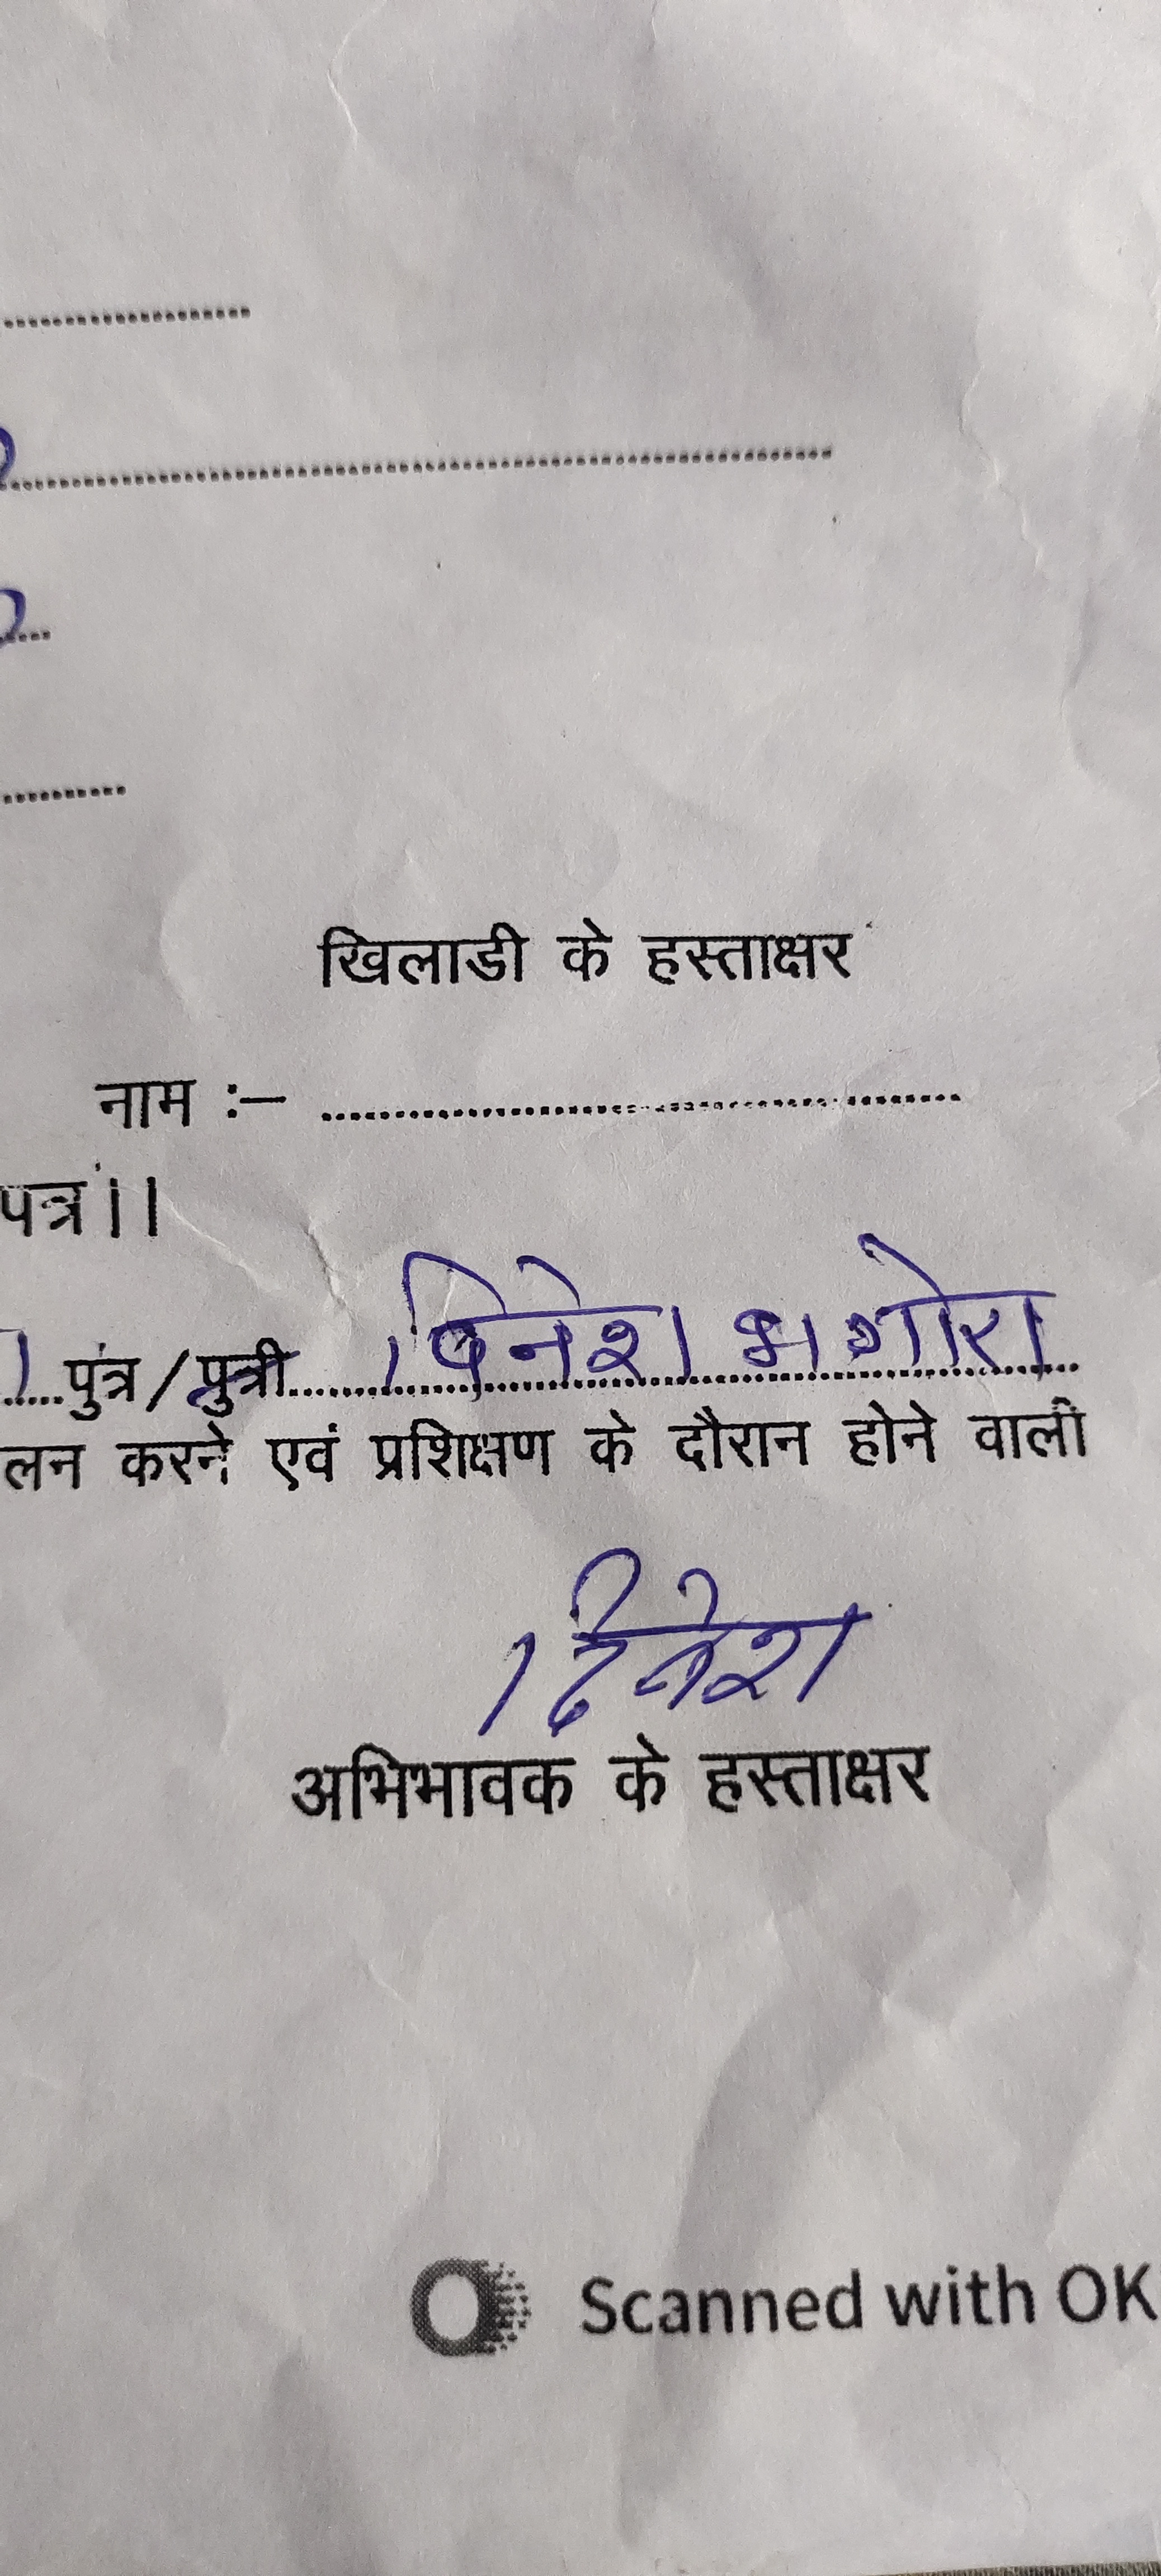 खिलाडी के हस्ताक्षर
नाम :– ........................................
पत्र ।।
पुत्र / पुत्री दिनेश भगोरा
लन करने एवं प्रशिक्षण के दौरान होने वाली
दिनेश
अभिभावक के हस्ताक्षर
Scanned with OK